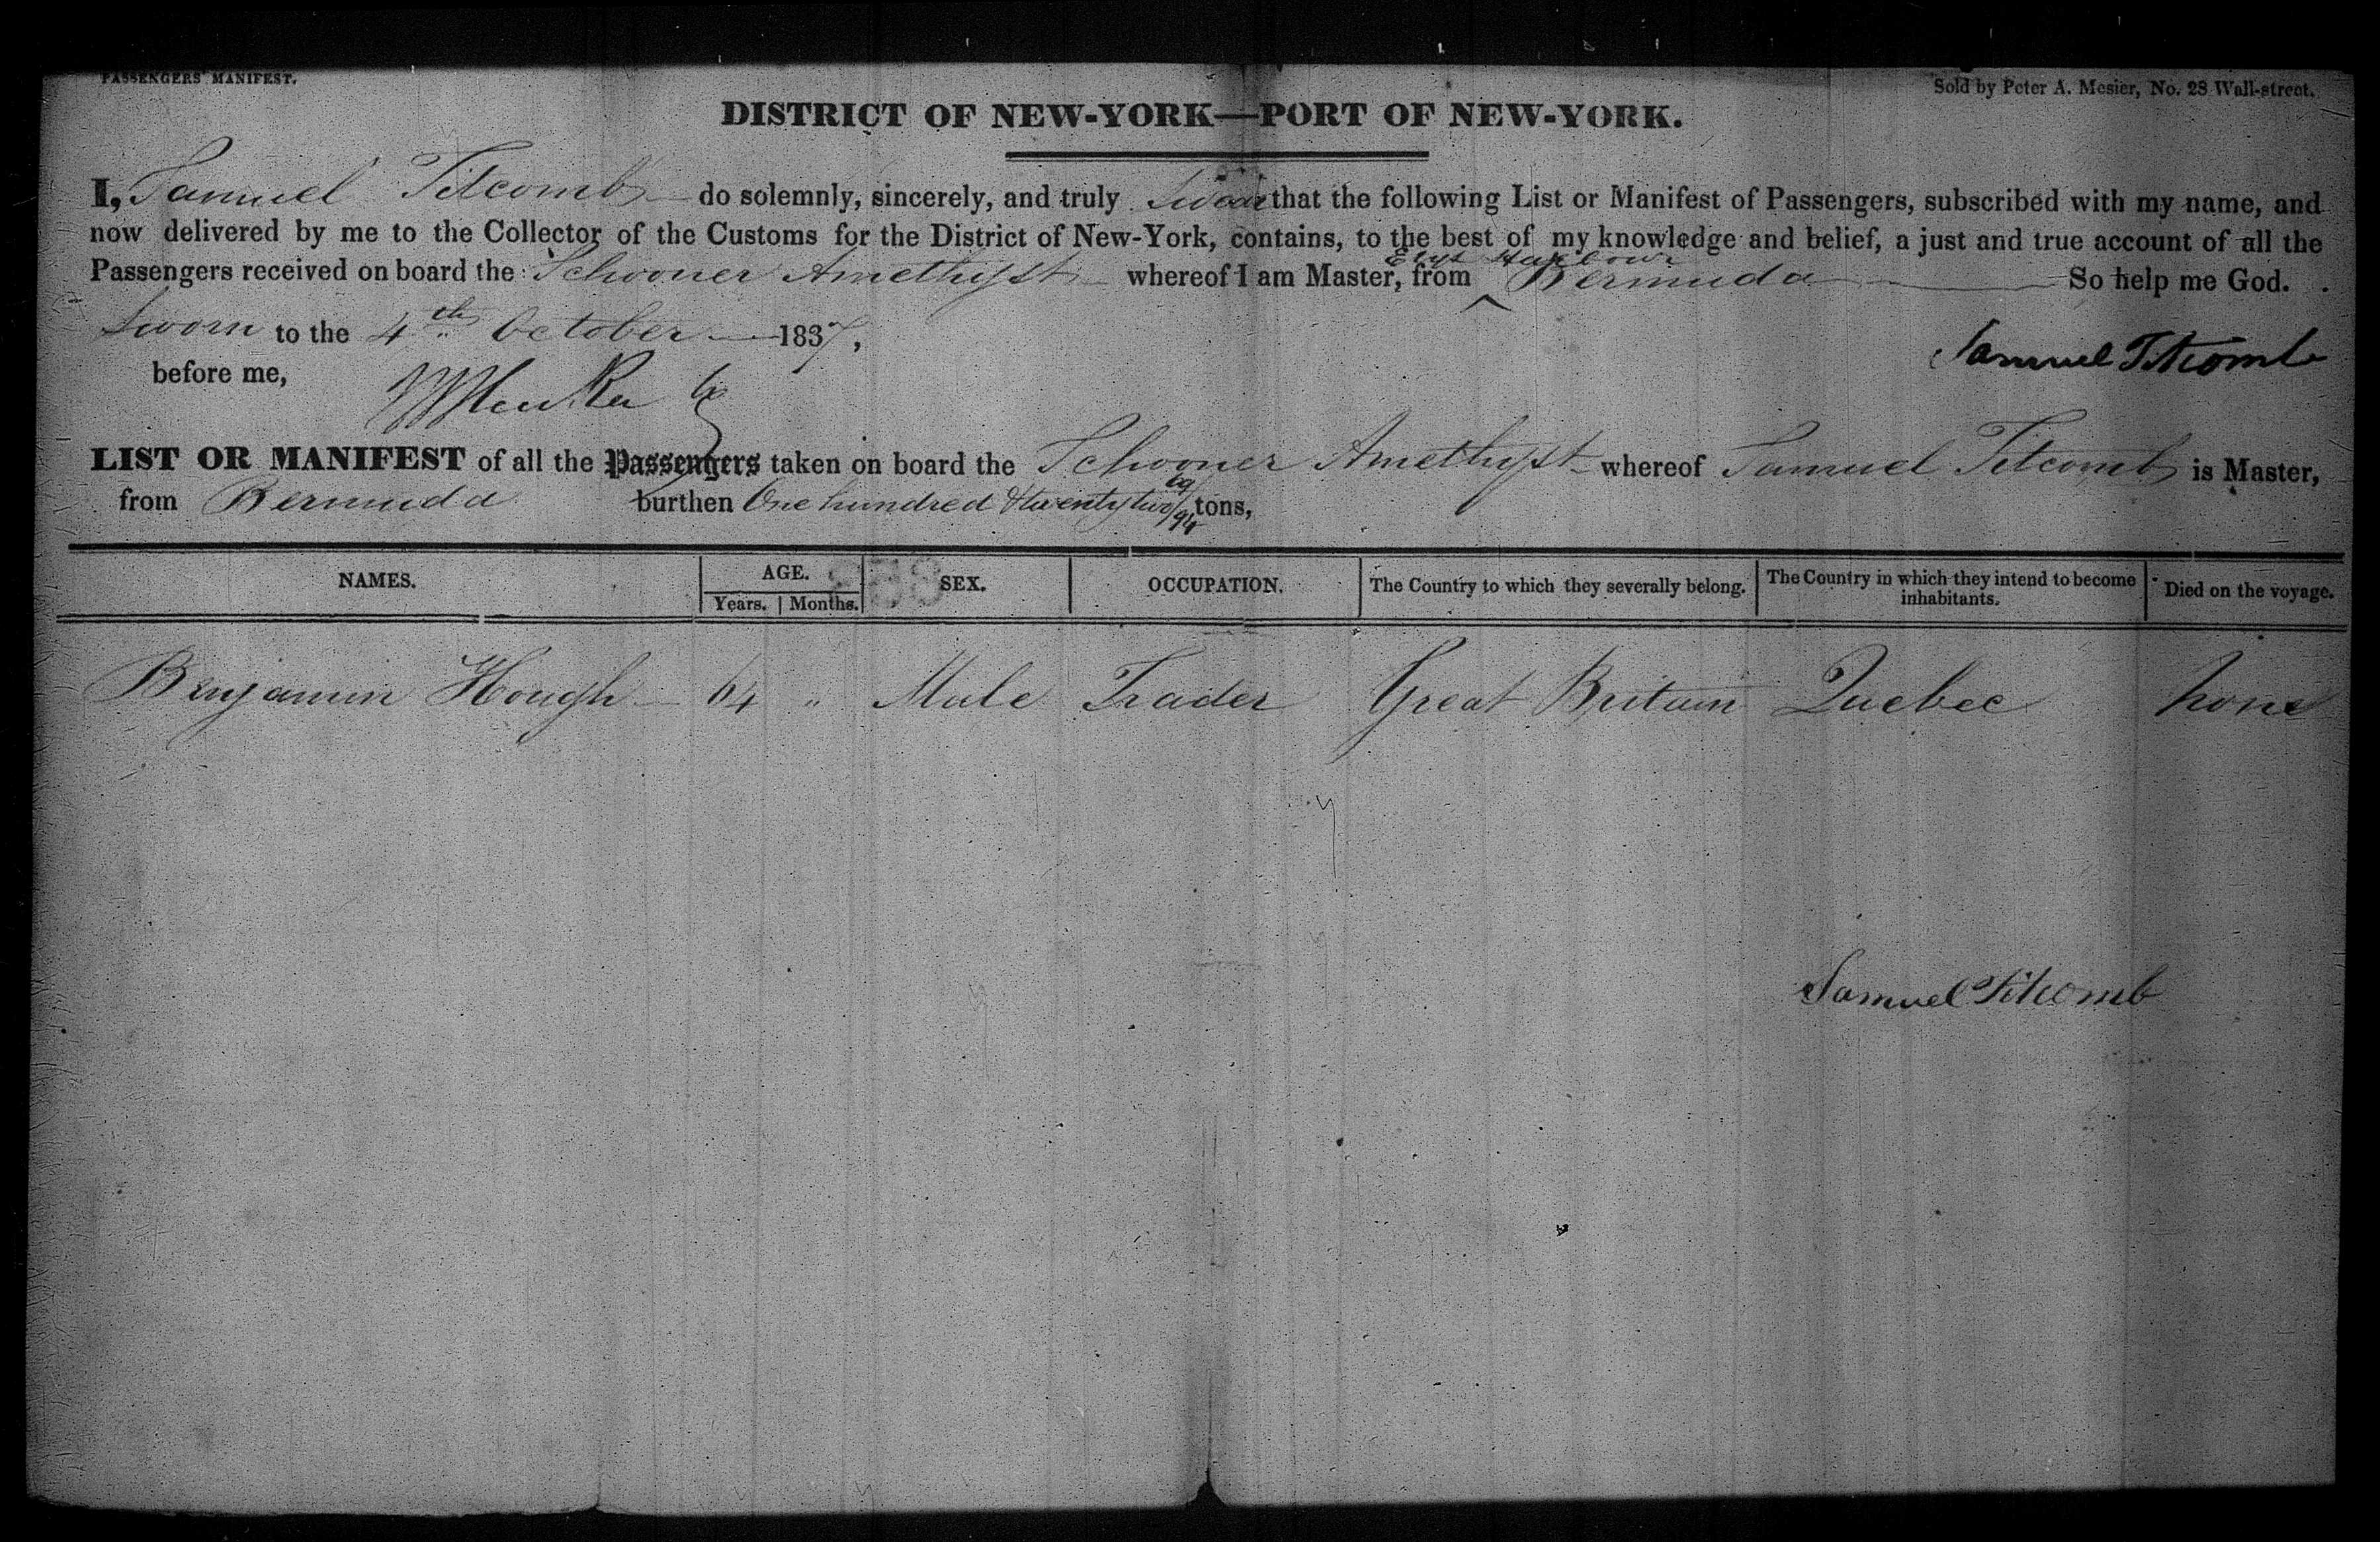 PASSENGERS' MANIFEST.
Sold by Peter A. Mesier, No. 28 Wall-street.
DISTRICT OF NEW-YORK—PORT OF NEW-YORK.
I, Samuel Titcomb do solemnly, sincerely, and truly Swear that the following List or Manifest of Passengers, subscribed with my name, and
now delivered by me to the Collector of the Customs for the District of New-York, contains, to the best of my knowledge and belief, a just and true account of all the
Elys Harbour
Passengers received on board the Schooner Amethyst whereof I am Master, from ^ Bermuda So help me God.
Sworn to the 4th October 1837,
Samuel Titcomb
before me,
LIST OR MANIFEST of all the Passengers taken on board the Schooner Amethyst whereof Samuel Titcomb is Master,
from Bermuda burthen One hundred & twenty two 69/94 tons,
NAMES. AGE. SEX. OCCUPATION. The Country to which they severally belong. The Country in which they intend to become inhabitants. Died on the voyage.
Years. Months.
Benjamin Hough 64 " Male Trader Great Britain Quebec none
Samuel Titcomb